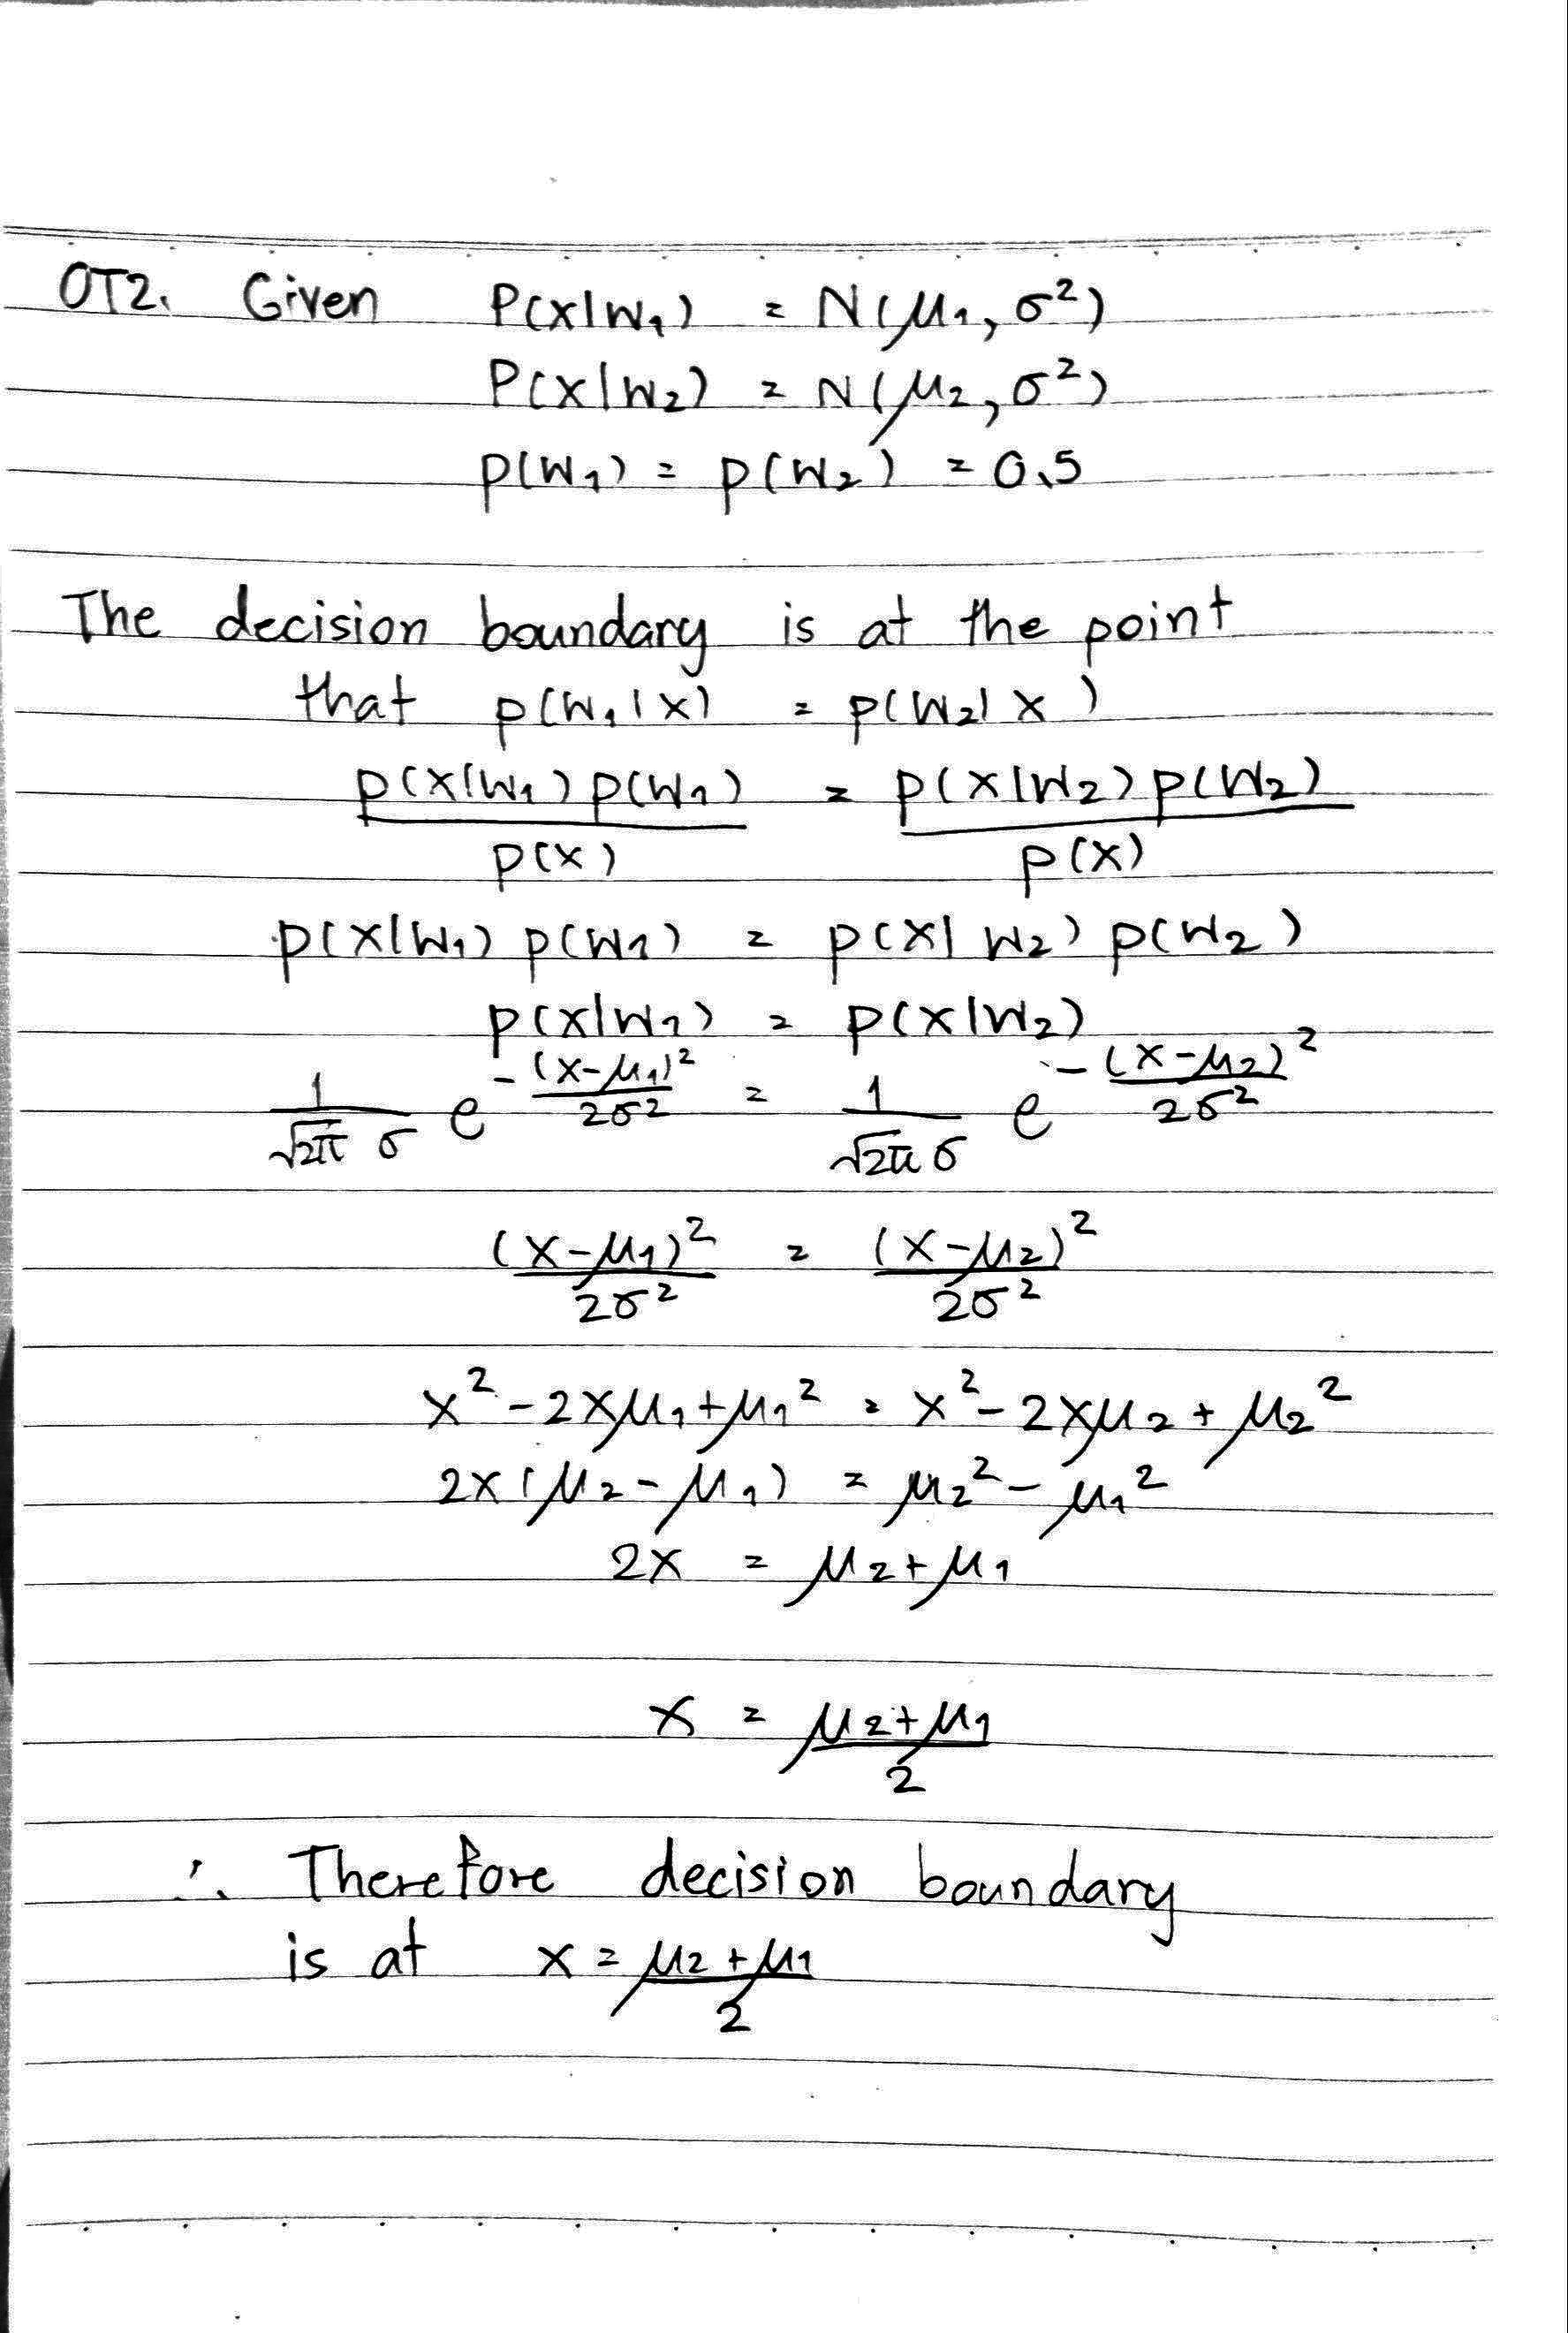 OT2. Given P(x|w₁) = N(μ₁, σ²)
P(x|w₂) = N(μ₂, σ²)
p(w₁) = p(w₂) = 0.5
The decision boundary is at the point
that p(w₁|x) = p(w₂|x)
p(x|w₁) p(w₁) / p(x) = p(x|w₂) p(w₂) / p(x)
p(x|w₁) p(w₁) = p(x|w₂) p(w₂)
p(x|w₁) = p(x|w₂)
1/(√2π σ) e^(-(x-μ₁)²/2σ²) = 1/(√2π σ) e^(-(x-μ₂)²/2σ²)
(x-μ₁)²/2σ² = (x-μ₂)²/2σ²
x² - 2xμ₁ + μ₁² = x² - 2xμ₂ + μ₂²
2x(μ₂ - μ₁) = μ₂² - μ₁²
2x = μ₂ + μ₁
x = (μ₂ + μ₁)/2
∴ Therefore decision boundary
is at x = (μ₂ + μ₁)/2